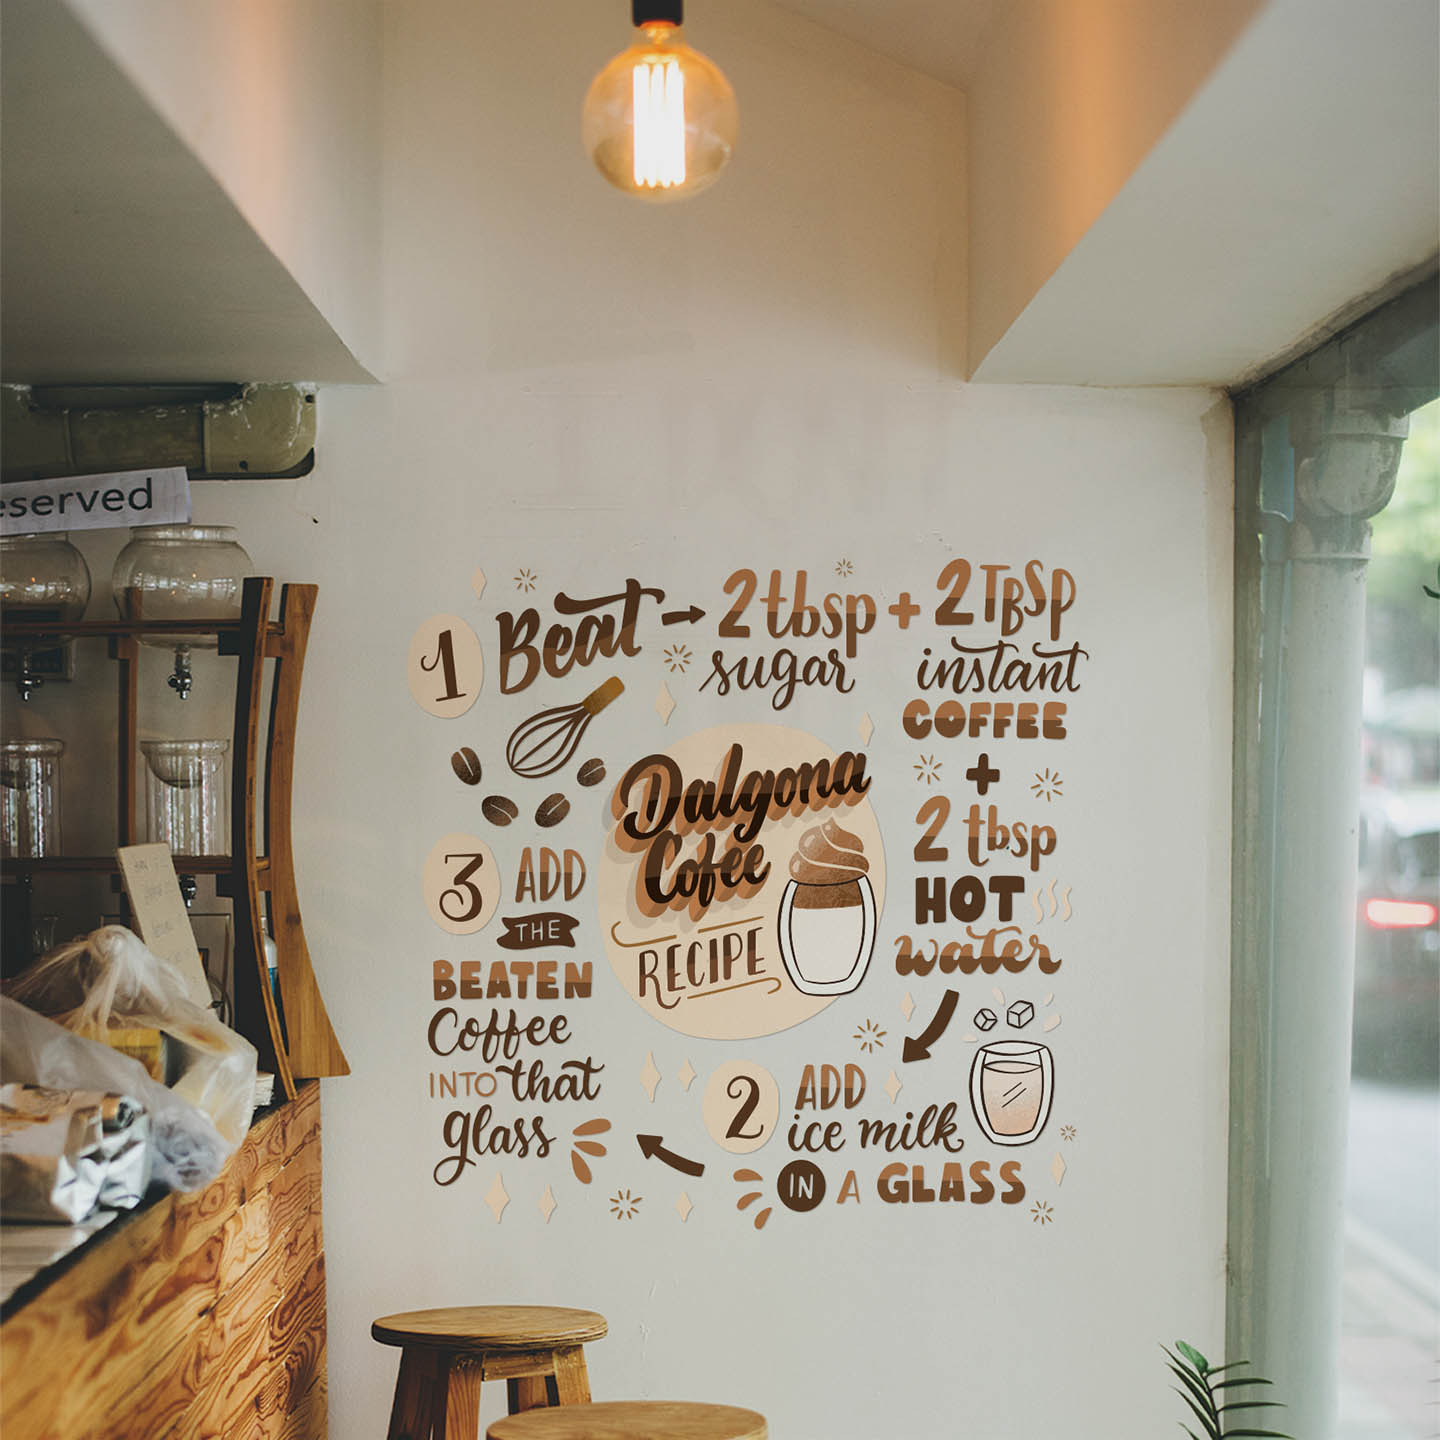 eserved
1 Beat → 2 tbsp + 2 TBSP
sugar instant
COFFEE
+
2 tbsp
HOT
water
Dalgona
Cofee
RECIPE
2 ADD
ice milk
IN A GLASS
3 ADD
THE
BEATEN
Coffee
INTO that
glass